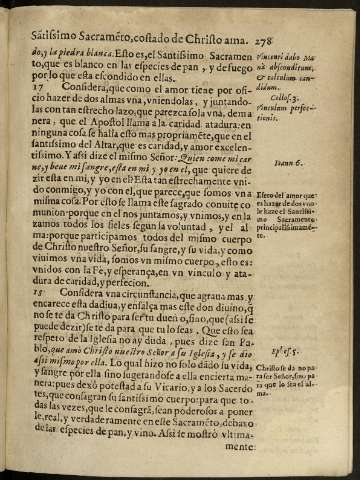 Sātissimo Sacramēto, costado de Christo ama. 278
do, y la piedra blanca. Esto es, el Santissimo Sacramen
to, que es blanco en las especies de pan, y de fuego
por lo que esta escondido en ellas.
17 Considera, que como el amor tiene por ofi
cio hazer de dos almas vna, vniendolas, y juntando-
las con tan estrecho lazo, que parezca sola vna, de ma
nera, que el Apostol llama a la caridad atadura: en
ninguna cosa se halla esto mas propriamēte, que en el
santissimo del Altar, que es caridad, y amor excelen-
tissimo. Y assi dize el mismo Señor: Quien come mi car
ne, y beue mi sangre, està en mi y yo en el, que quiere de
zir està en mi, y yo en el: Està tan estrechamente vni-
do conmigo, y yo con el, que parece, que somos vna
misma cosa. Por esto se llama este sagrado conuite co
munion: porque en el nos juntamos, y vnimos, y enla
zamos todos los fieles segun la voluntad, y el al
ma: porque participamos todos del mismo cuerpo
de Christo nuestro Señor, su sangre, y su vida, y como
viuimos vna vida, somos vn mismo cuerpo, esto es:
vnidos con la Fè, y esperança, en vn vinculo y ata-
dura de caridad, y perfecion.
Considera vna circunstancia, que agraua mas y
encarece esta dadiua, y ensalça mas este don diuino, q̄
no se te dà Christo para ser tu dueño, sino, que (assi se
puede dezir) se te dà para que tu lo seas. Que esto sea
respeto de la Iglesia no ay duda, pues dize san Pa-
blo, que amò Christo nuestro Señor a su Iglesia, y se dio
assi mismo por ella. Lo qual hizo no solo dãdo su vida,
y sangre por ella sino sugetandose a ella en cierta ma-
nera: pues dexò potestad a su Vicario, y a los Sacerdo
tes, que consagran su santissimo cuerpo: para que to-
das las vezes, que le consagrã, sean poderosos a poner
le, real, y verdaderamente en este Sacramēto, debaxo
de las especies de pan, y vino. Assi se mostrò vltima-
mente
Vincenti dabo Ma
nà absconditum,
& calculum can-
didum.
Colos. 3.
Vinculum perfec-
tionis.
Ioann 6.
Efeto del amor que
es hazer de dos vno
le haze el Santissi-
mo Sacramento
principalissimamē-
te.
Ephes. 5.
Christo se da no pa
ra ser Señor, sino pa
ra que lo sea el al-
ma.